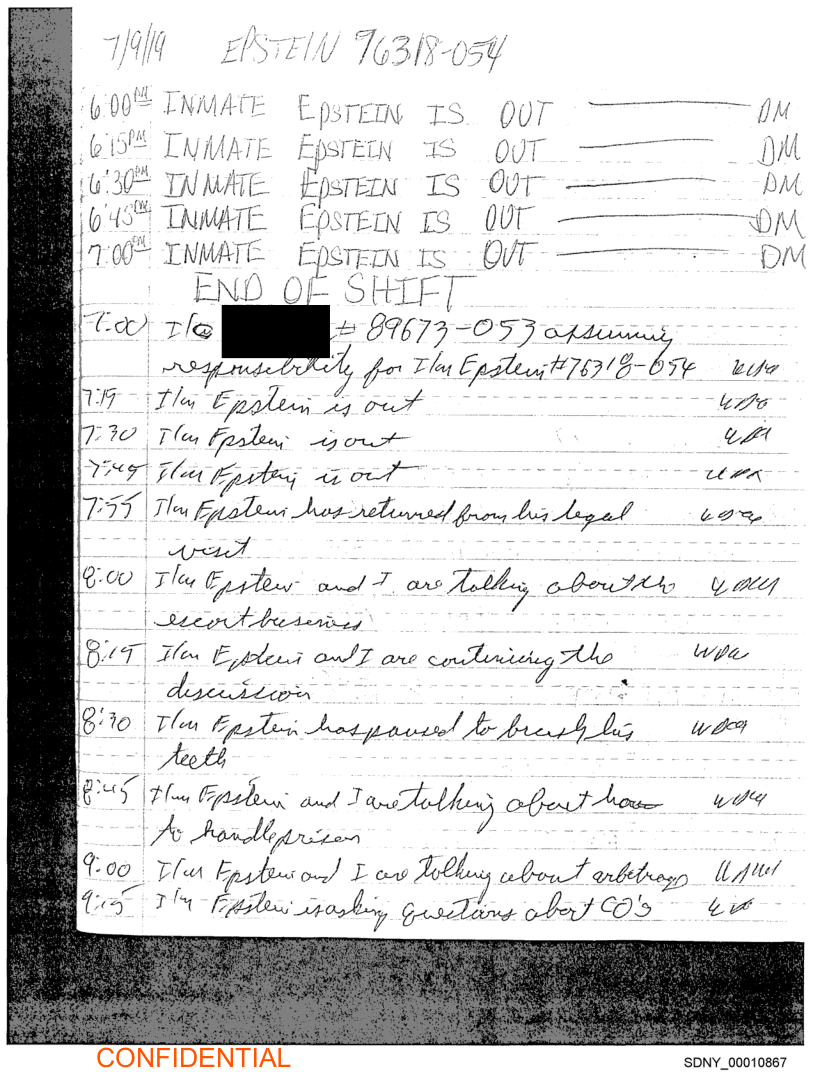 7/9/19 EPSTEIN 76318-054
6:00 PM INMATE EPSTEIN IS OUT DM
6:15 PM INMATE EPSTEIN IS OUT DM
6:30 PM INMATE EPSTEIN IS OUT DM
6:45 PM INMATE EPSTEIN IS OUT DM
7:00 PM INMATE EPSTEIN IS OUT DM
END OF SHIFT
7:00 I/C # 89673-053 assuming
responsibility for I/m Epstein #76318-054
7:15 I/m Epstein is out
7:30 I/m Epstein is out
7:45 I/m Epstein is out
7:55 I/m Epstein has returned from his legal
visit
8:00 I/m Epstein and I are talking about the
escort business
8:15 I/m Epstein and I are continuing the
discussion
8:30 I/m Epstein has paused to brush his
teeth
8:45 I/m Epstein and I are talking about how
to handle prison
9:00 I/m Epstein and I are talking about arbitrage
9:15 I/m Epstein is asking questions about CO's
CONFIDENTIAL
SDNY_00010867